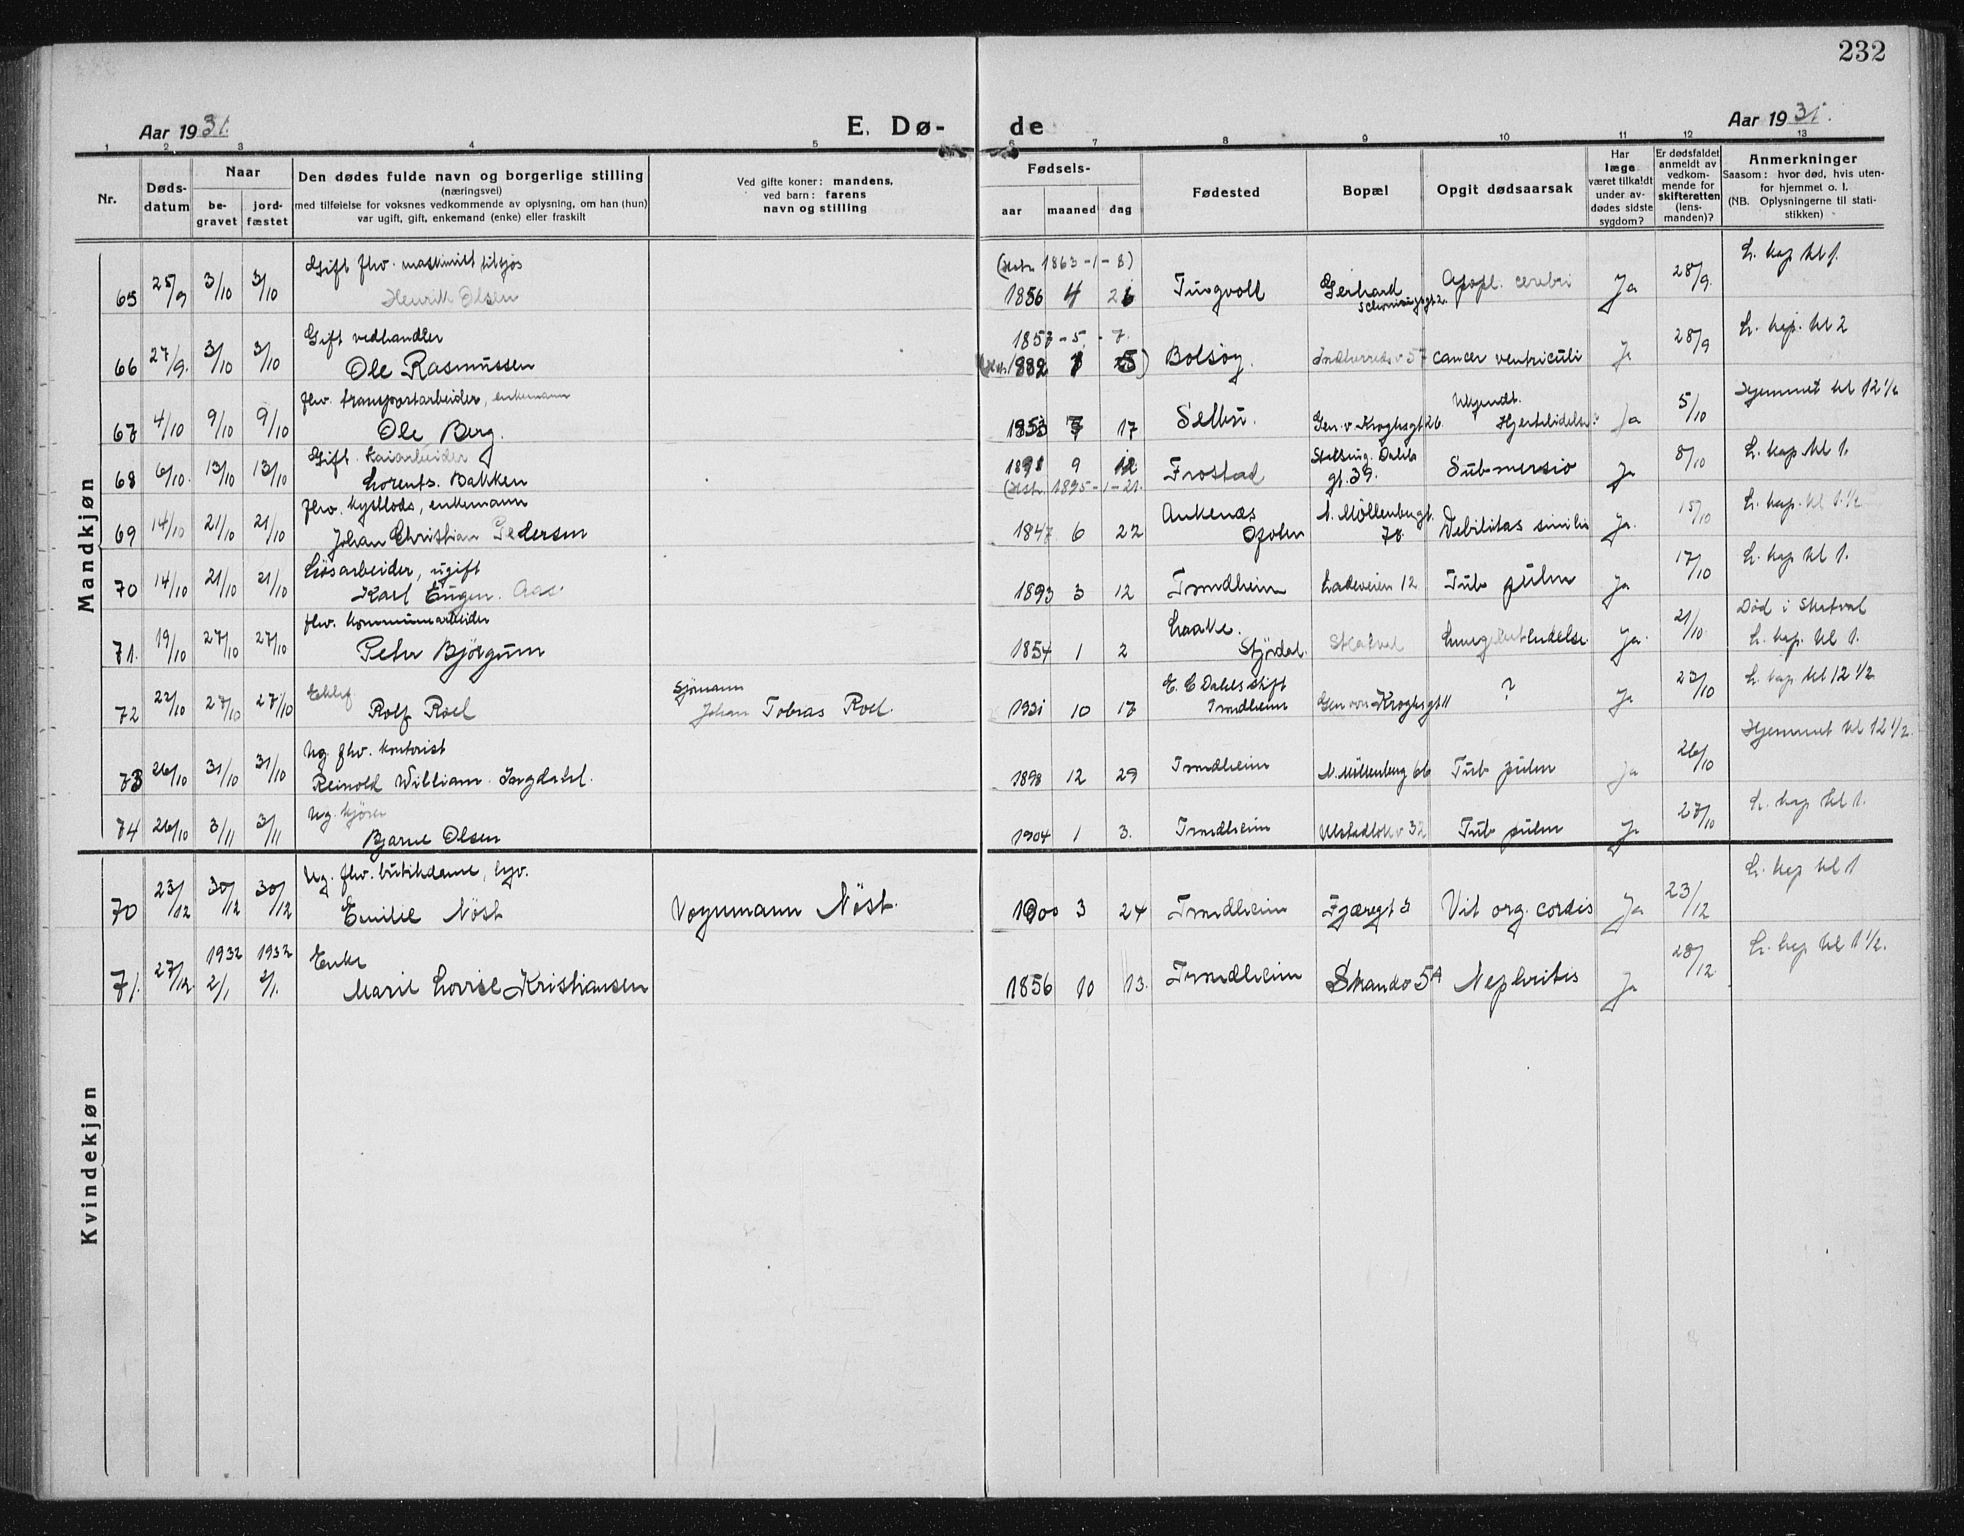 232
Aar 1931.
E. Dø-
de
Aar 1931.
1 2 3 4 5 6 7 8 9 10 11 12 13
Nr.
Døds-
datum
Naar
be-
gravet
jord-
fæstet
Den dødes fulde navn og borgerlige stilling
(næringsvei)
med tilføielse for voksnes vedkommende av oplysning, om han (hun)
var ugift, gift, enkemand (enke) eller fraskilt
Ved gifte koner: mandens,
ved barn: farens
navn og stilling
Fødsels-
aar maaned dag
Fødested
Bopæl
Opgit dødsaarsak
Har
læge
været tilkaldt
under av-
dødes sidste
sygdom?
Er dødsfaldet
anmeldt av
vedkom-
mende for
skifteretten
(lens-
manden)?
Anmerkninger
Saasom: hvor død, hvis uten-
for hjemmet o. l.
(NB. Oplysningerne til stati-
stikken)
Mandkjøn
Gift fhv. maskinist tilsjøs (Attest 1863-1-8) L. kap kl 1.
65 25/9 3/10 3/10 Henrik Olsen 1856 4 26 Tingvoll Gerhard Schøningsgt 2. Apopl. cerebri Ja 28/9
Gift vedhandler 1857-5-7. L. kap. kl 2
66 27/9. 3/10 3/10 Ole Rasmussen 1882 Bolsøy. Indherredsv 57 cancer ventriculi Ja 28/9
fhv. transportarbeider, enkemann Hjemmet kl 12 1/2
67 4/10 9/10 9/10 Ole Berg. 1853 17 Selbu. Gen. v. Kroghsgt 26. Hjertelidelse? Ja 5/10
Gift kaiarbeider 1891 9 12 L. kap kl 1.
68 6/10. 13/10 13/10 Lorents Bakken (Attest 1895-1-21. Frostad Stiftsing. Dahls gt. 39. Submersio Ja 8/10
fhv. kystlods, enkemann L. kap. kl 1.1/2
69 14/10 21/10 21/10 Johan Christian Pedersen 1847 6 22 Ankenæs Ofoten N. Møllenbergt. 78. Debilitas senilis Ja. 15/10
Løsarbeider, ugift L. kap kl 1.
70 14/10 21/10 21/10 Karl Eugen Aas 1893 3 12 Trondheim Ladeveien 12 Tub pulm Ja 17/10
fhv. kommunearbeider Død i Skatval
71. 19/10 27/10 27/10 Peter Bjørgum 1854 1 2 Laake. Stjørdal. Skatval Lungebetendelse Ja. 21/10. L. kap. kl 1.
72 22/10 27/10 27/10 Ektef Rolf Roel Sjømann Johan Tobias Roel. 1931 10 17 E. C Dahls stift Trondheim Gen von Kroghsgt 11 ? Ja 23/10 L. kap kl 12 1/2
Ug. fhv. kontorist Hjemmet kl 12 1/2.
73 26/10 31/10 31/10 Reinold William Jagdahl. 1898 12 29 Trondheim N. Møllenberg 66 Tub pulm Ja 26/10
Ug. kjører L. kap kl 1.
74 26/10 3/11 3/11 Bjarne Olsen 1904 1 3. Trondheim Ulstadløkv 32 Tub pulm Ja 27/10
Kvindekjøn
Ug. fhv. butikkdame, L. kap kl 1
70 23/12 30/12 30/12 Emilie Nöst Vognmann Nöst. 1900 3 24 Trondheim Fjæregt 3 Vit org. cordis Ja 23/12
1932 1932 Enke L. kap kl 1 1/2.
71. 27/12 2/1 2/1. Marie Lovise Kristiansen 1856 10 13. Trondheim Strandv 5A Nephritis Ja 28/12